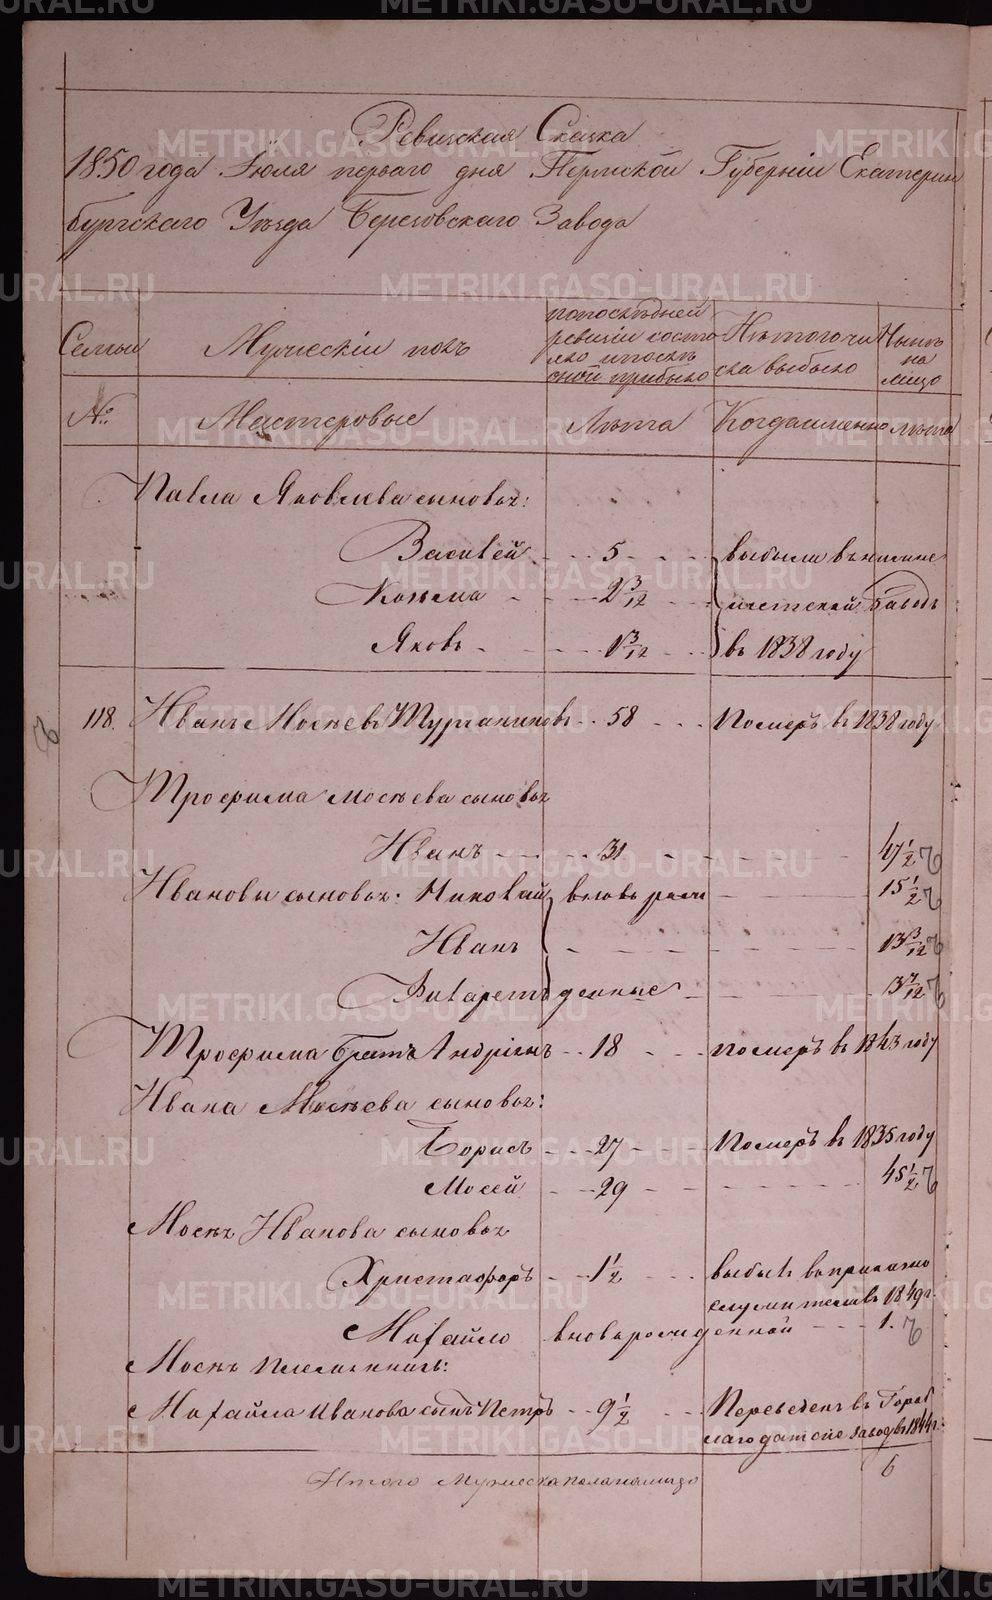 Ревизская Сказка
1850 года Июля перваго дня Пермской Губернии Екатерин
бургскаго Уезда Березовскаго Завода
Семьи
Мужескій полъ
попоследней
ревизіи состо
яло ипосле
оной прибыло
Изтогочи
сла выбыло
Ныне
на
лицо
№:
Мастеровые
Лета
Когдаименно
лета
Павла Яковлева сыновья:
Василей - - 5 - - выбыли в
Козьма - - 2 3/12 - - Заводъ
Яковъ - - 1 3/12 - - въ 1838 году
118. Иванъ Мосеевъ Турчаниновъ - - 58 - - Померъ въ 1838 году
Трофима Мосеева сыновья
Иванъ - - 31 - - 47 1/2
Ивановы сыновья: Николай вновь рож - - 15 1/2
Иванъ - - 13 3/12
Филаретъ денные - - 3 7/12
Трофима братъ Андріянъ - - 18 - - померъ въ 1843 году
Ивана Мосеева сыновья:
Борисъ - - 27 - - Померъ въ 1835 году
Мосей - - 29 - - 45 1/2
Мосея Иванова сыновья
Христофоръ - - 1 1/2 - - выбылъ вприказно
служителивъ 1849 г.
Михайло вноворожденной - - 1.
Мосея племянникъ:
Михайла Иванова сынъ Петръ - - 9 1/2 - - Переведенъ въ Гороб
лагодатские заводы въ 1844 г.
Итого Мужеска поланалицо 6
METRIKI.GASO-URAL.RU